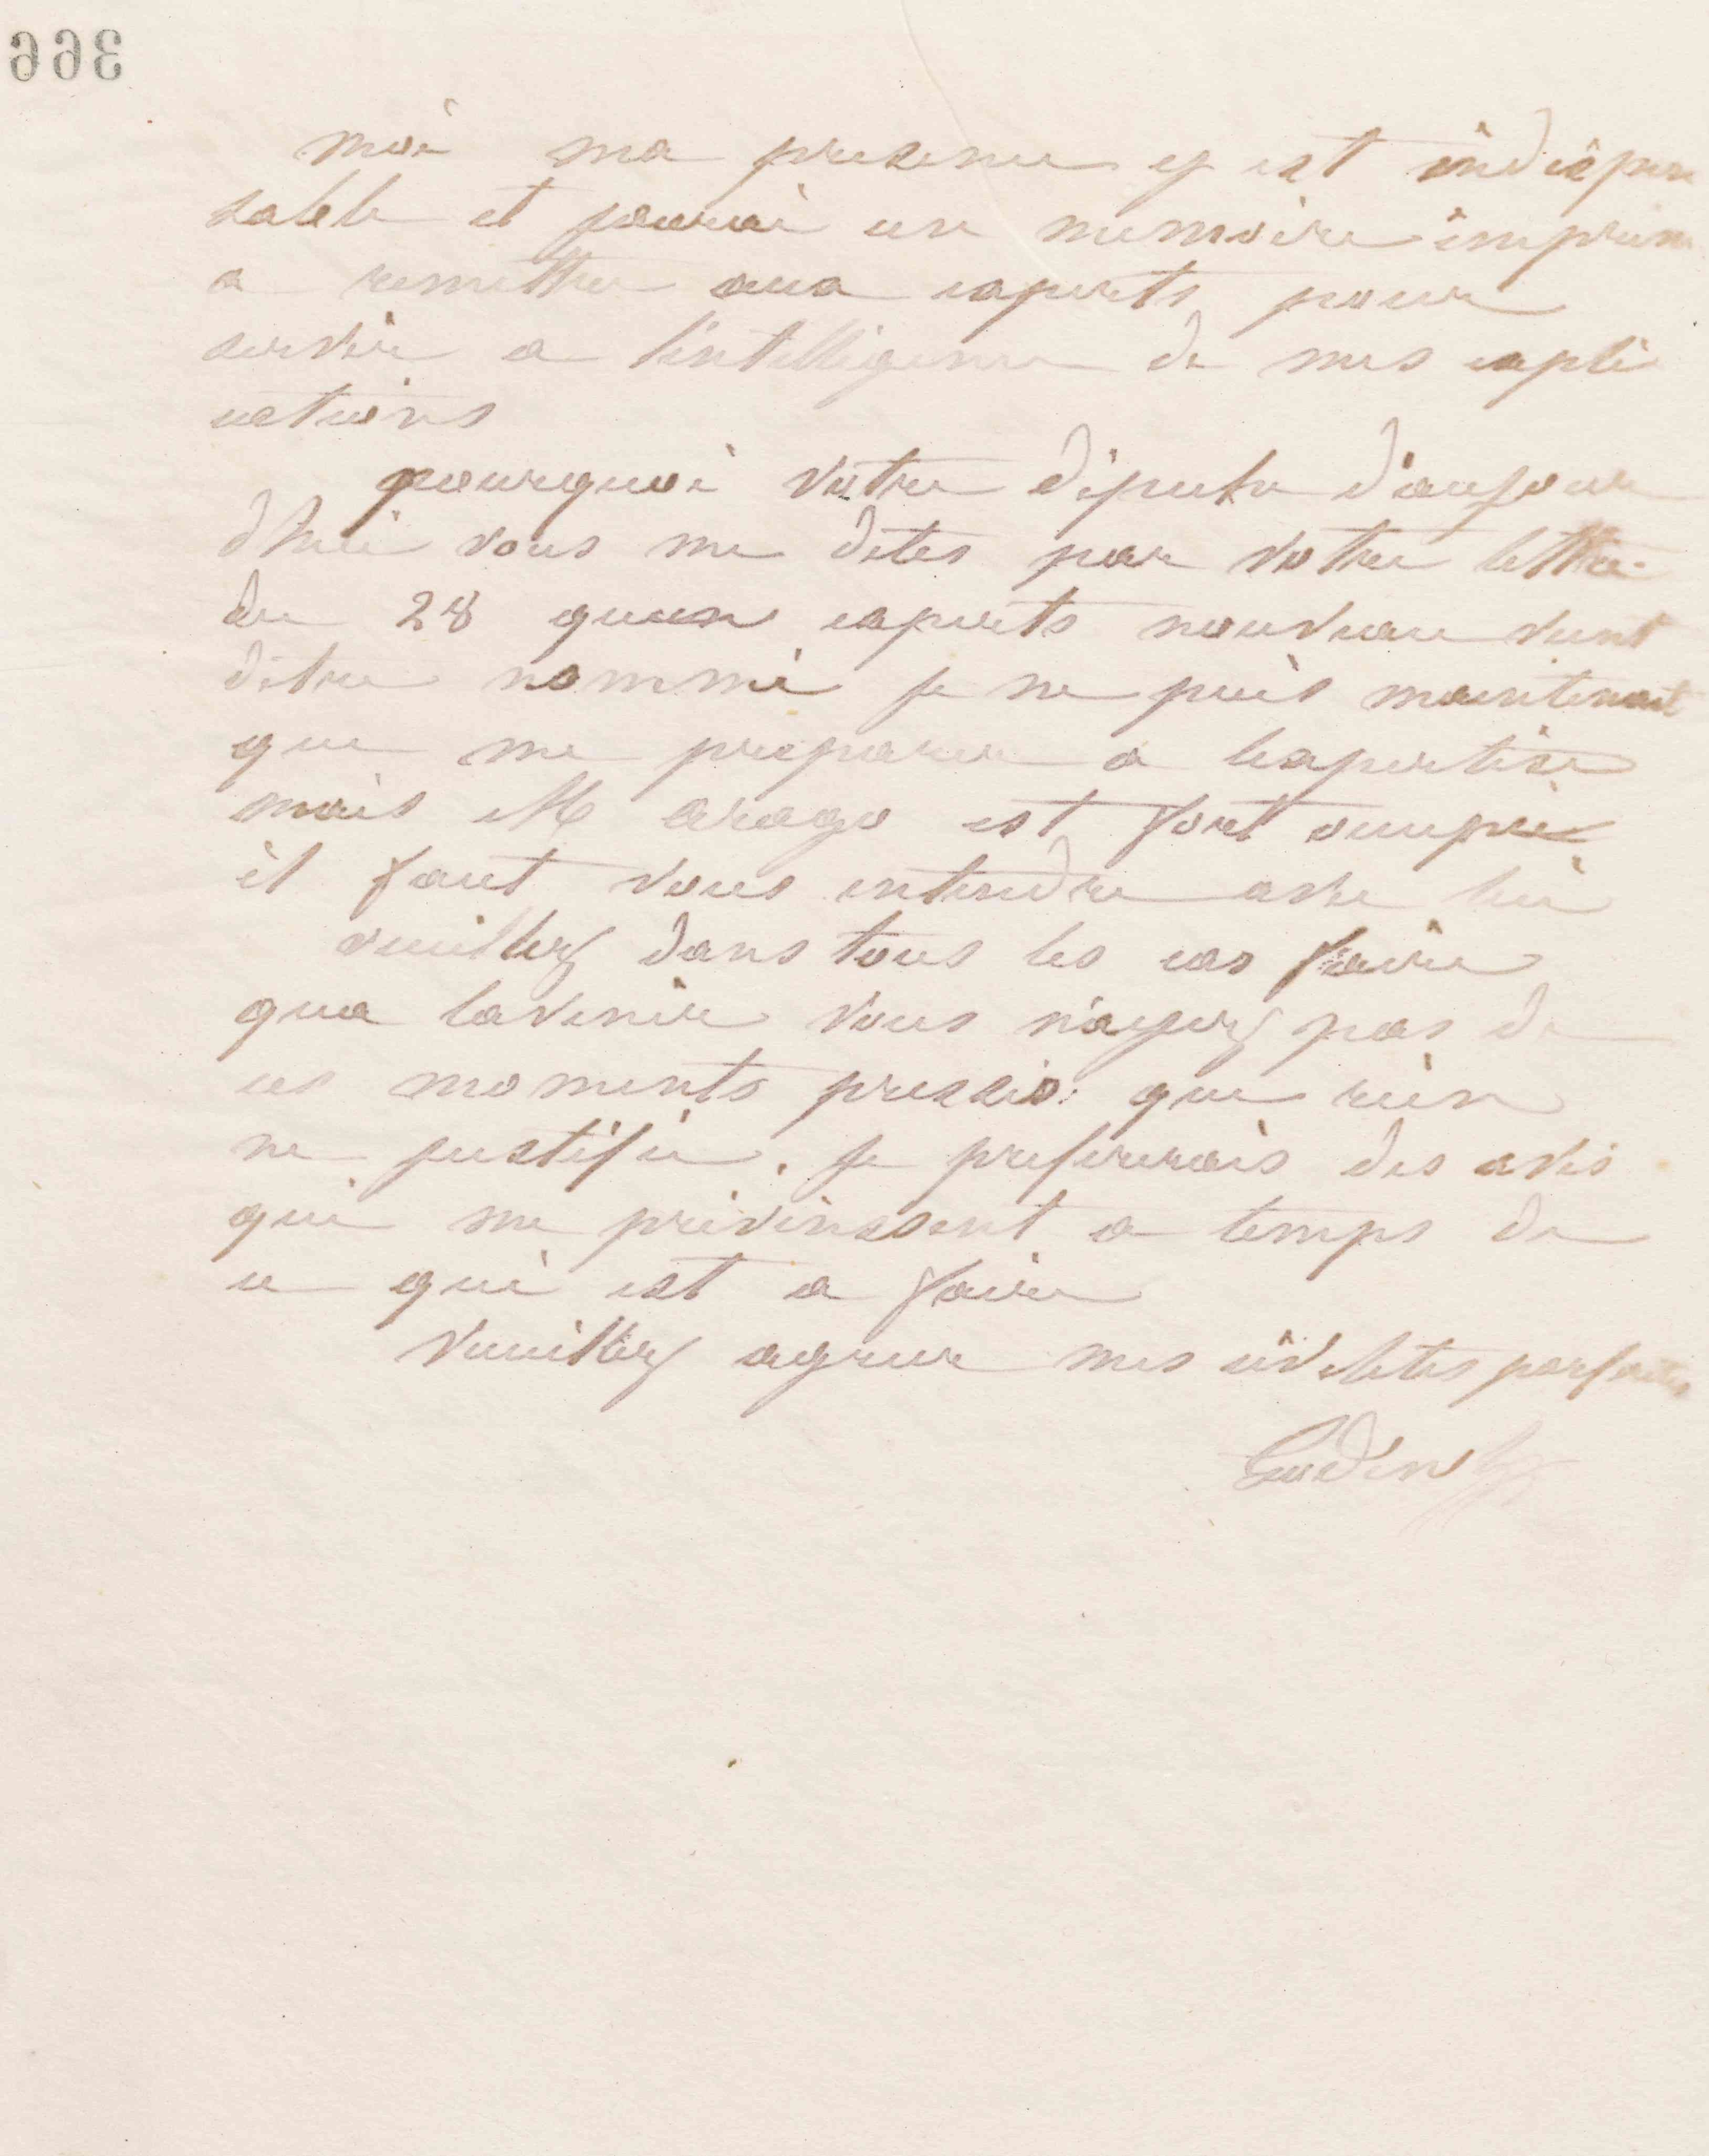 366
moi ma presence y est indispen
sable et jaurai un memoire imprimé
a remettre aux experts pour
servir a l'intelligence de mes expli
cations
pourquoi votre dépeche d'aujour
dhui vous me dites par votre lettre
du 28 quun experts nouveau vient
detre nommé je ne puis maintenant
que me preparer a lexpertise
mais M arago est fort occupé
il faut vous entendre avec lui
veuillez dans tous les cas faire
qua lavenir vous n'ayez pas de
ces moments pressés que rien
ne justifie. je prefererais des avis
qui me prévinssent a temps de
ce qui est a faire
Veuillez agreer mes civilités parfaites
Godin